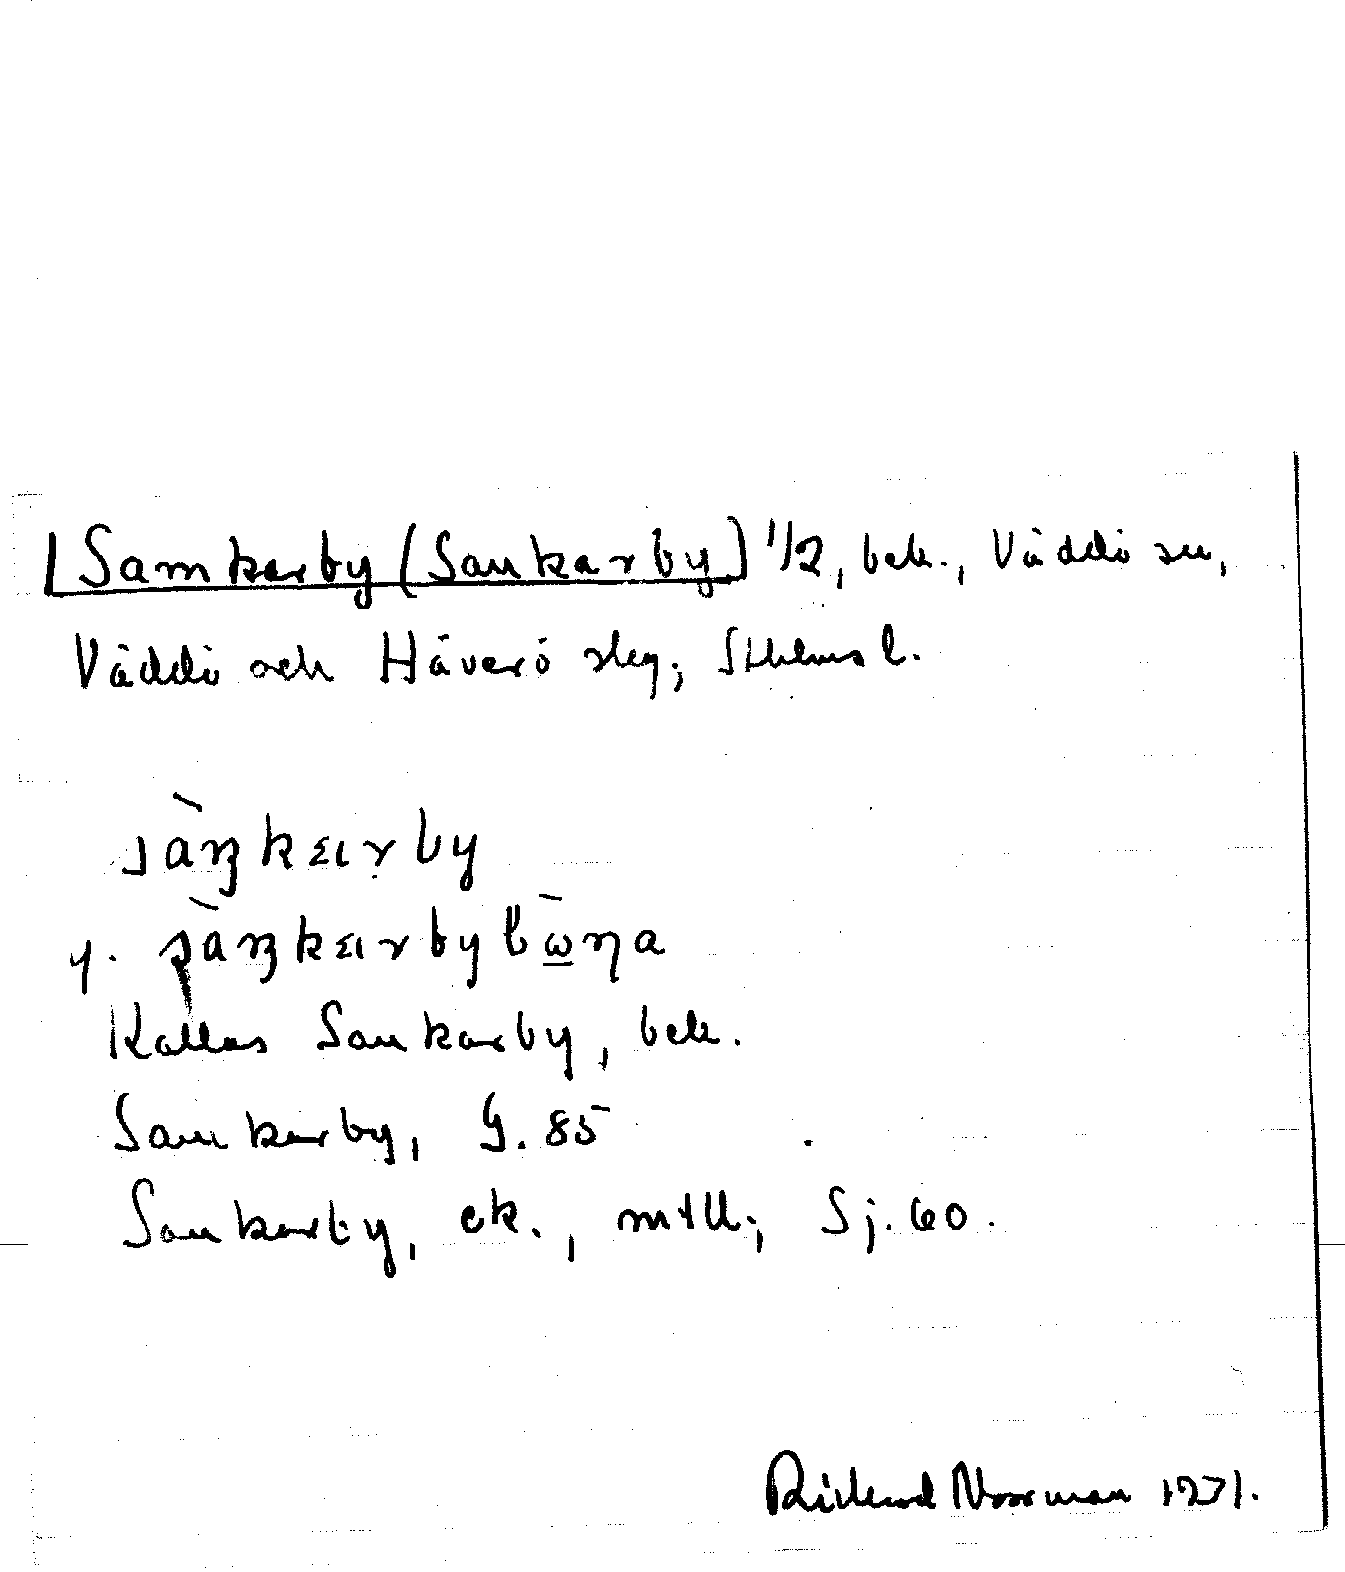 [Samkarby (Sankarby) 1/2, beb., Väddö sn,
Väddö och Häverö skg; Sthlms l.
sàŋkarby
y. sàŋkarbybòna
Kallas Sankarby, beb.
Samkarby, G. 85
Sankarby, ek., mtll; Sj. 60.
Rickard Norrman 1931.